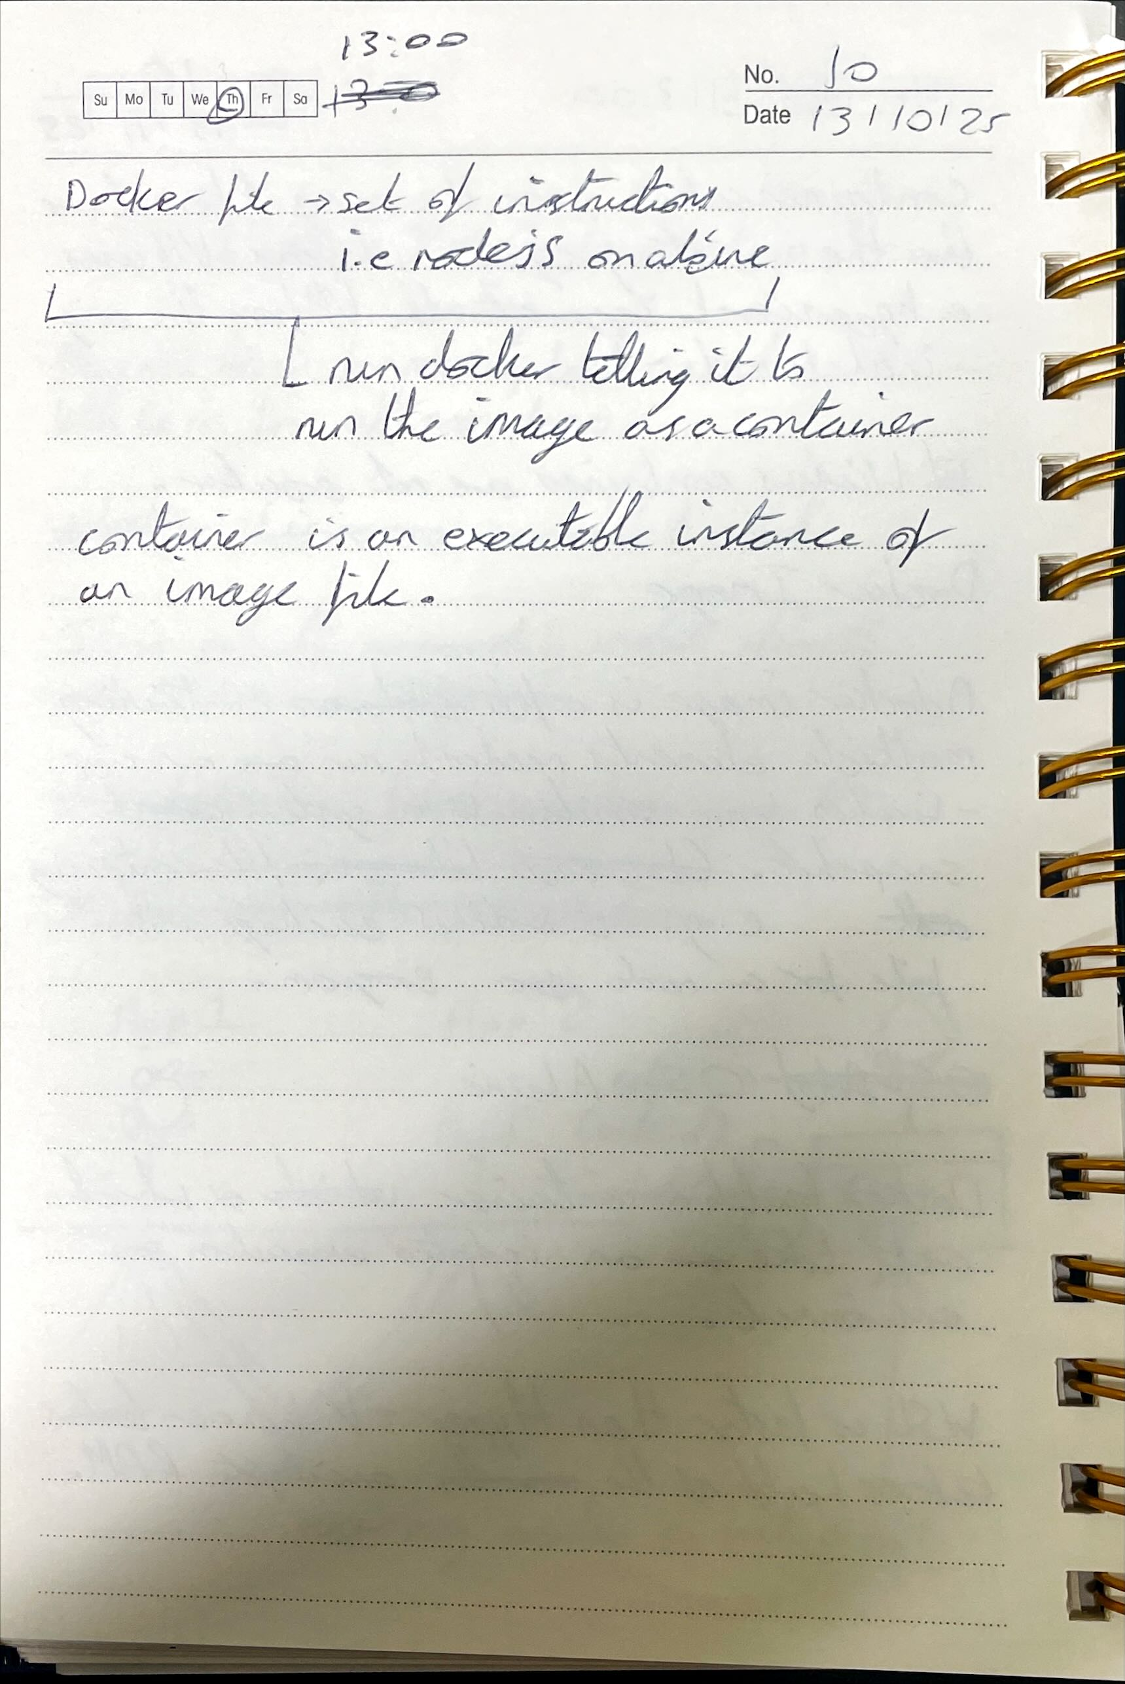 13:00
Su Mo Tu We Th Fr Sa
No. 10
Date 13/10/25
Docker file → set of instructions
i.e nodejs on alpine
run docker telling it to
run the image as a container
container is an executable instance of
an image file.